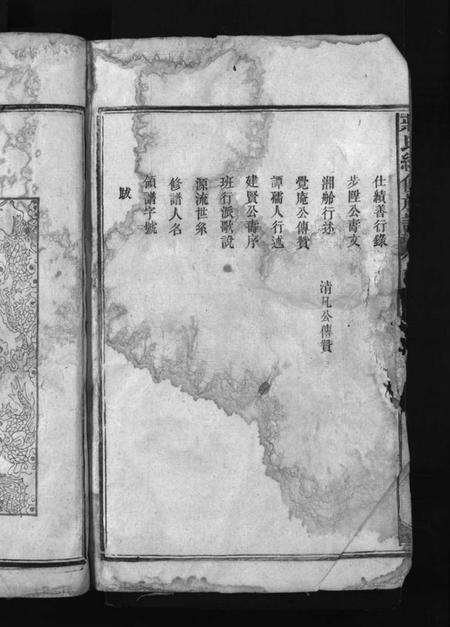 仕績善行錄
步陞公壽文
湘舲行述
清凡公傳贊
覺庵公傳贊
譚孺人行述
建賢公壽序
班行派歌說
源流世系
修譜人名
領譜字號
跋